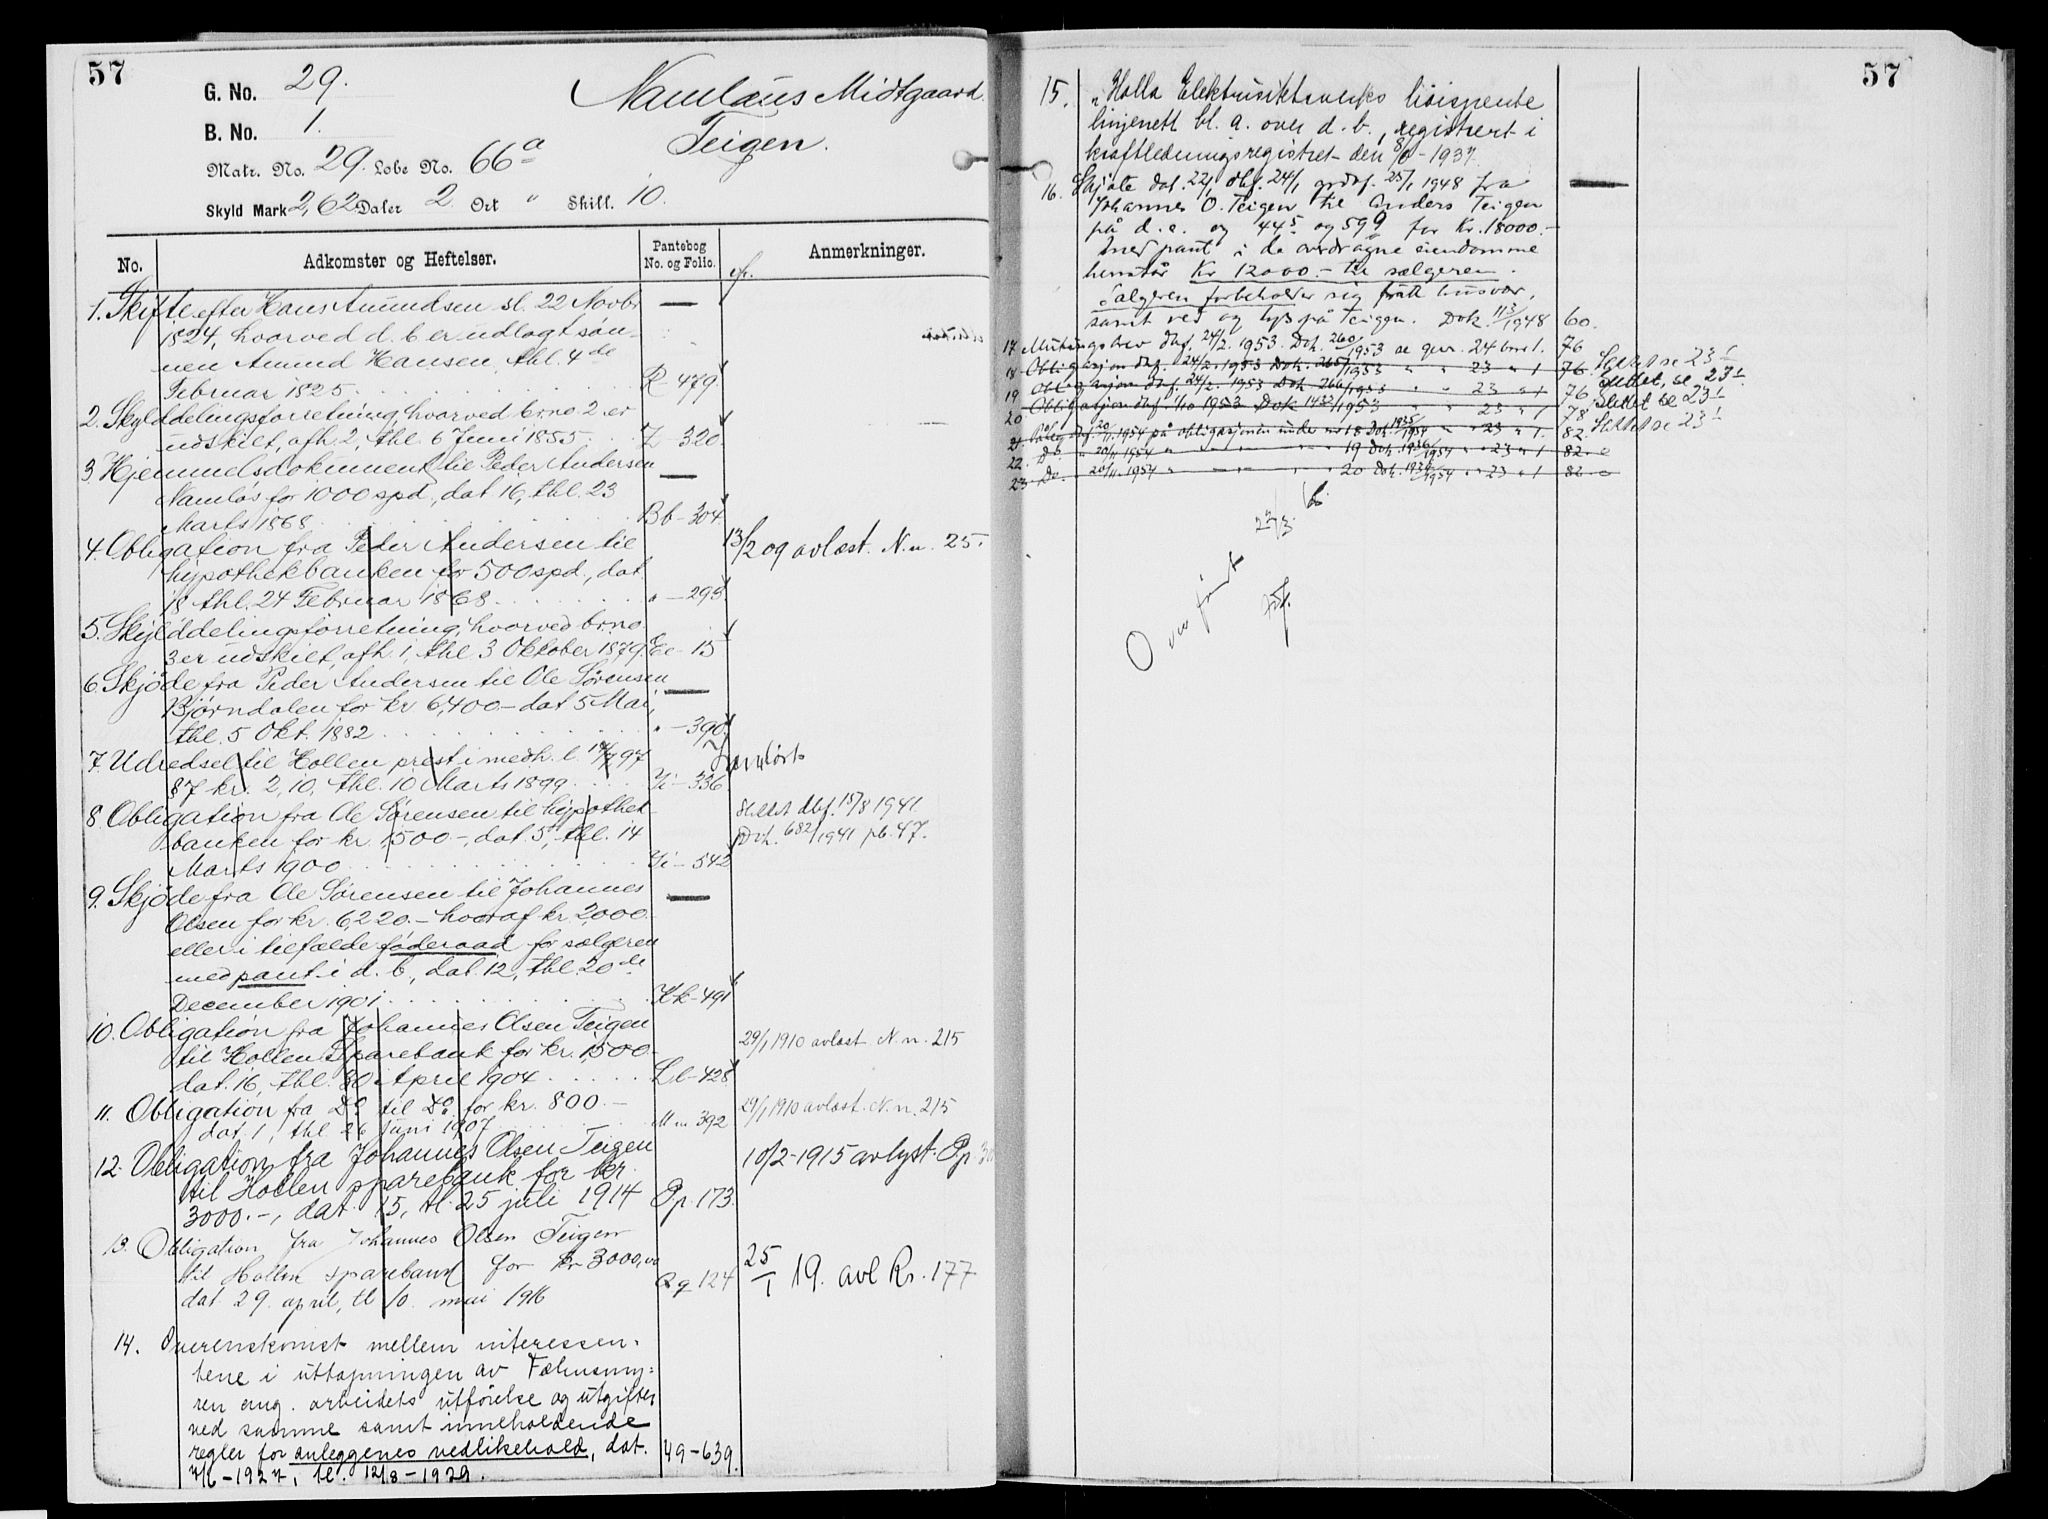 57
G. No. 29.
B. No. 1.
Matr. No. 29. Lobe No. 66a
Skyld Mark 2,62 Daler 2 Ort " Skill. 10.
Namlaus Midtgaard
Teigen.
No. Adkomster og Heftelser. Pantebog No. og Folio. Anmerkninger.
1. Skifte efter Hans Amundsen sl. 22 Novbr
1824, hvorved d. b. er udlagt søn-
nen Amund Hansen, thl. 4de
Februar 1825 R 479.
2. Skylddelingsforretning hvorved brno 2 er
udskilt, afh. 2, thl. 6 Juni 1855 Z 320
3 Hjemmelsdokument til Peder Andersen
Namløs for 1000 spd, dat 16, thl. 23
Marts 1868 Bb-304
4. Obligation fra Peder Andersen til 13/2 09 avlæst. N.n. 25.
hypothekbanken for 500 spd., dat
18 thl. 24 Februar 1868 " - 293.
5. Skylddelingsforretning, hvorved brno
3 er udskilt, afh. 1, thl 3 Oktober 1879. Ee - 15
6. Skjøde fra Peder Andersen til Ole Sørensen
Bjørndalen for kr 6,400.- dat 5 Mai,
thl. 5 Okt. 1882 " - 390.
7. Udredsel til Hollen prest i medh. l. 14/7 97
§7 kr. 2,10, thl. 10 Marts 1899 Ii - 336
8. Obligation fra Ole Sørensen til hypothek- Slettet dbf. 15/8 1941
banken for kr. 1,500-, dat. 5, thl. 14 Dok. 682/1941 pb. 47.
Marts 1900 Ii - 542
9. Skjøde fra Ole Sørensen til Johannes
Olsen for kr. 6,220.- hvoraf kr. 2,000.-
eller i tilfælde føderaad for sælgeren
med pant i d. b., dat. 12, thl. 20de
December 1901 Kk - 491
10. Obligation fra Johannes Olsen Teigen 29/1 1910 avlæst N.n. 215
til Hollen Sparebank for kr. 1,500-
dat. 16, thl. 30 April 1904 Ll - 428
11. Obligation fra Do til Do for kr. 800.- 29/1 1910 avlæst. N.n. 215
dat. 1, thl 26 Juni 1907 Mm 392
12. Obligation fra Johannes Olsen Teigen 10/2-1915 avlyst. Pp
til Hollen sparebank for kr.
3000.-, dat. 15, tl. 25 juli 1914 Pp. 173.
13. Obligation fra Johannes Olsen Teigen
til Hollen sparebank for kr 3000,00 25/1 19. avl Rr. 177
dat. 29. april, tl 10. mai 1916 Qq 124
14. Overenskomst mellem interessen-
tene i uttapningen av Fælmsmy-
ren ang. arbeidets utførelse og utgifter
ved samme samt inneholdende
regler for anleggenes vedlikehold, dat.
7/6-1927, tl. 12/8-1929. 49-639.
57
15. Holla Elektrisitetsverks høispente
linjenett bl. a. over d. b., registrert i
kraftledningsregistret den 8/6-1937.
16. Skjøte dat. 22/1 dbf. 24/1 grdbf. 25/1 1948 fra
Johannes O. Teigen til Anders Teigen
på d. e. og 44 5 og 59 9 for kr. 18000.-
Med pant i de overdragne eiendomme
henstår kr 12000.- til sælgeren.
Selgeren forbeholder sig fritt husvær,
samt ved og lys på Teigen. Dok. 113/1948 60.
17 Mutungsbrev dbf. 24/2. 1953. Dok. 260/1953 se gnr. 24 bnr 1. 76
18 Obligasjon dbf. 24/2. 1953 Dok. 265/1953 " " 23 " 1 76. Slettet se 23 1
19 Obligasjon dbf. 24/2. 1953 Dok 266/1953 " " 23 " 1 76 Slettet, se 23 1
20 Obligasjon dbf. 1/10 1953 Dok 1432/1953 " " 23 " 1 78 Slettet se 23 1
21. Påtegn. dbf. 20/11. 1954 på obligasjonen under nr 18 Dok. 1935/1954 " " 23 " 1. 82. Slettet se 23 1
22. Do. " 20/11 1954 " " 19 Dok. 1936/1954 " " 23 " 1 82.
23 Do. " 20/11. 1954 " " 20 Dok. 1937/1954 " " 23 " 1 82
Overført